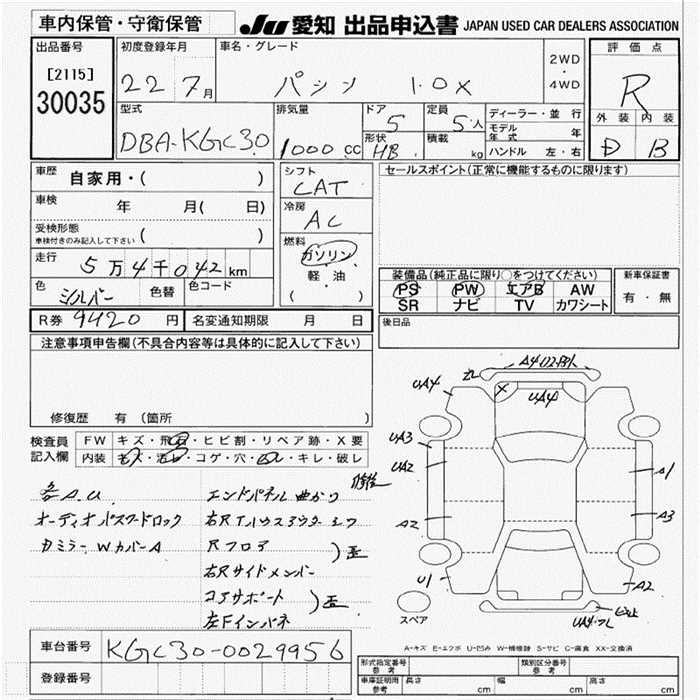 車内保管・守衛保管
JU 愛知 出品申込書 JAPAN USED CAR DEALERS ASSOCIATION
出品番号
[2115]
30035
初度登録年月
22 7月
車名・グレード
パシソ 1.0X
2WD
・
4WD
評価点
R
外装 内装
D B
型式
DBA-KGC30
排気量
1000 cc
ドア
5
定員
5人
形状
HB
積載
kg
ディーラー・並行
モデル年式 年
ハンドル 左・右
車歴 自家用・( )
車検 年 月( 日)
受検形態
車検付きのみ記入して下さい ( )
走行 5万4千042km
色 シルバー 色替
色コード
シフト
CAT
冷房
AC
燃料
ガソリン
軽・油
( )
セールスポイント(正常に機能するものに限ります)
装備品(純正品に限り○をつけてください)
PS PW エアB AW
SR ナビ TV カワシート
新車保証書
有・無
R券 9420 円
名変通知期限 月 日
後日品
注意事項申告欄(不具合内容等は具体的に記入して下さい)
修復歴 有 (箇所 )
検査員
記入欄
FW キズ・飛石・ヒビ割・リペア跡・X要
内装 キズ・汚レ・コゲ・穴・凹レ・キレ・破レ
各A.U エンドパネル曲がり 修復
オーディオパスワードロック
カミラーWカバーA
Rフロア
右Rサイドメンバー
コアサポート
左Fインパネ
歪
歪
UA4
UA4
UA3
UA2
A2
U1
A1
A3
A2
X
スペア
A-キズ E-エクボ U-凹み W-補修跡 S-サビ C-腐食 XX-交換済
車台番号 KGC30-0029956
登録番号
形式指定番号
参考
類別区分番号
参考
車庫証明用
参考
長さ cm
幅 cm
高さ cm